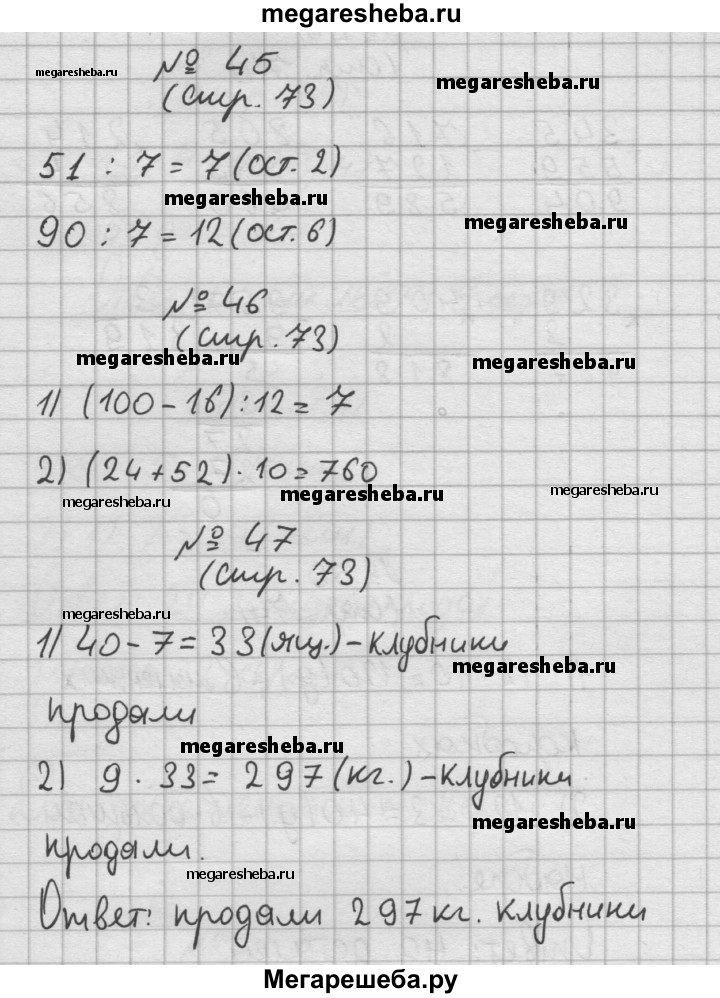 megaresheba.ru
№ 45
megaresheba.ru
(стр. 73)
megaresheba.ru
51 : 7 = 7 (ост. 2)
megaresheba.ru
90 : 7 = 12 (ост. 6)
megaresheba.ru
№ 46
(стр. 73)
megaresheba.ru
megaresheba.ru
1) (100 - 16) : 12 = 7
2) (24 + 52) · 10 = 760
megaresheba.ru
megaresheba.ru
megaresheba.ru
№ 47
(стр. 73)
megaresheba.ru
1) 40 - 7 = 33 (ящ.) - клубники
megaresheba.ru
продали
megaresheba.ru
2) 9 · 33 = 297 (кг.) - клубники
megaresheba.ru
продали.
megaresheba.ru
Ответ: продали 297 кг. клубники
Мегарешеба.ру